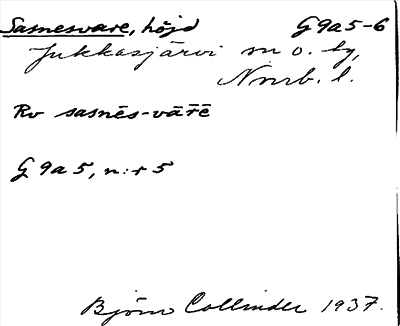 Sasnesvare, höjd G9a5-6
Jukkasjärvi sn o. by,
Nmrb. l.
Rv sasnēs-vār̄ē
G 9a 5, n:r 5
Björn Collinder 1937.